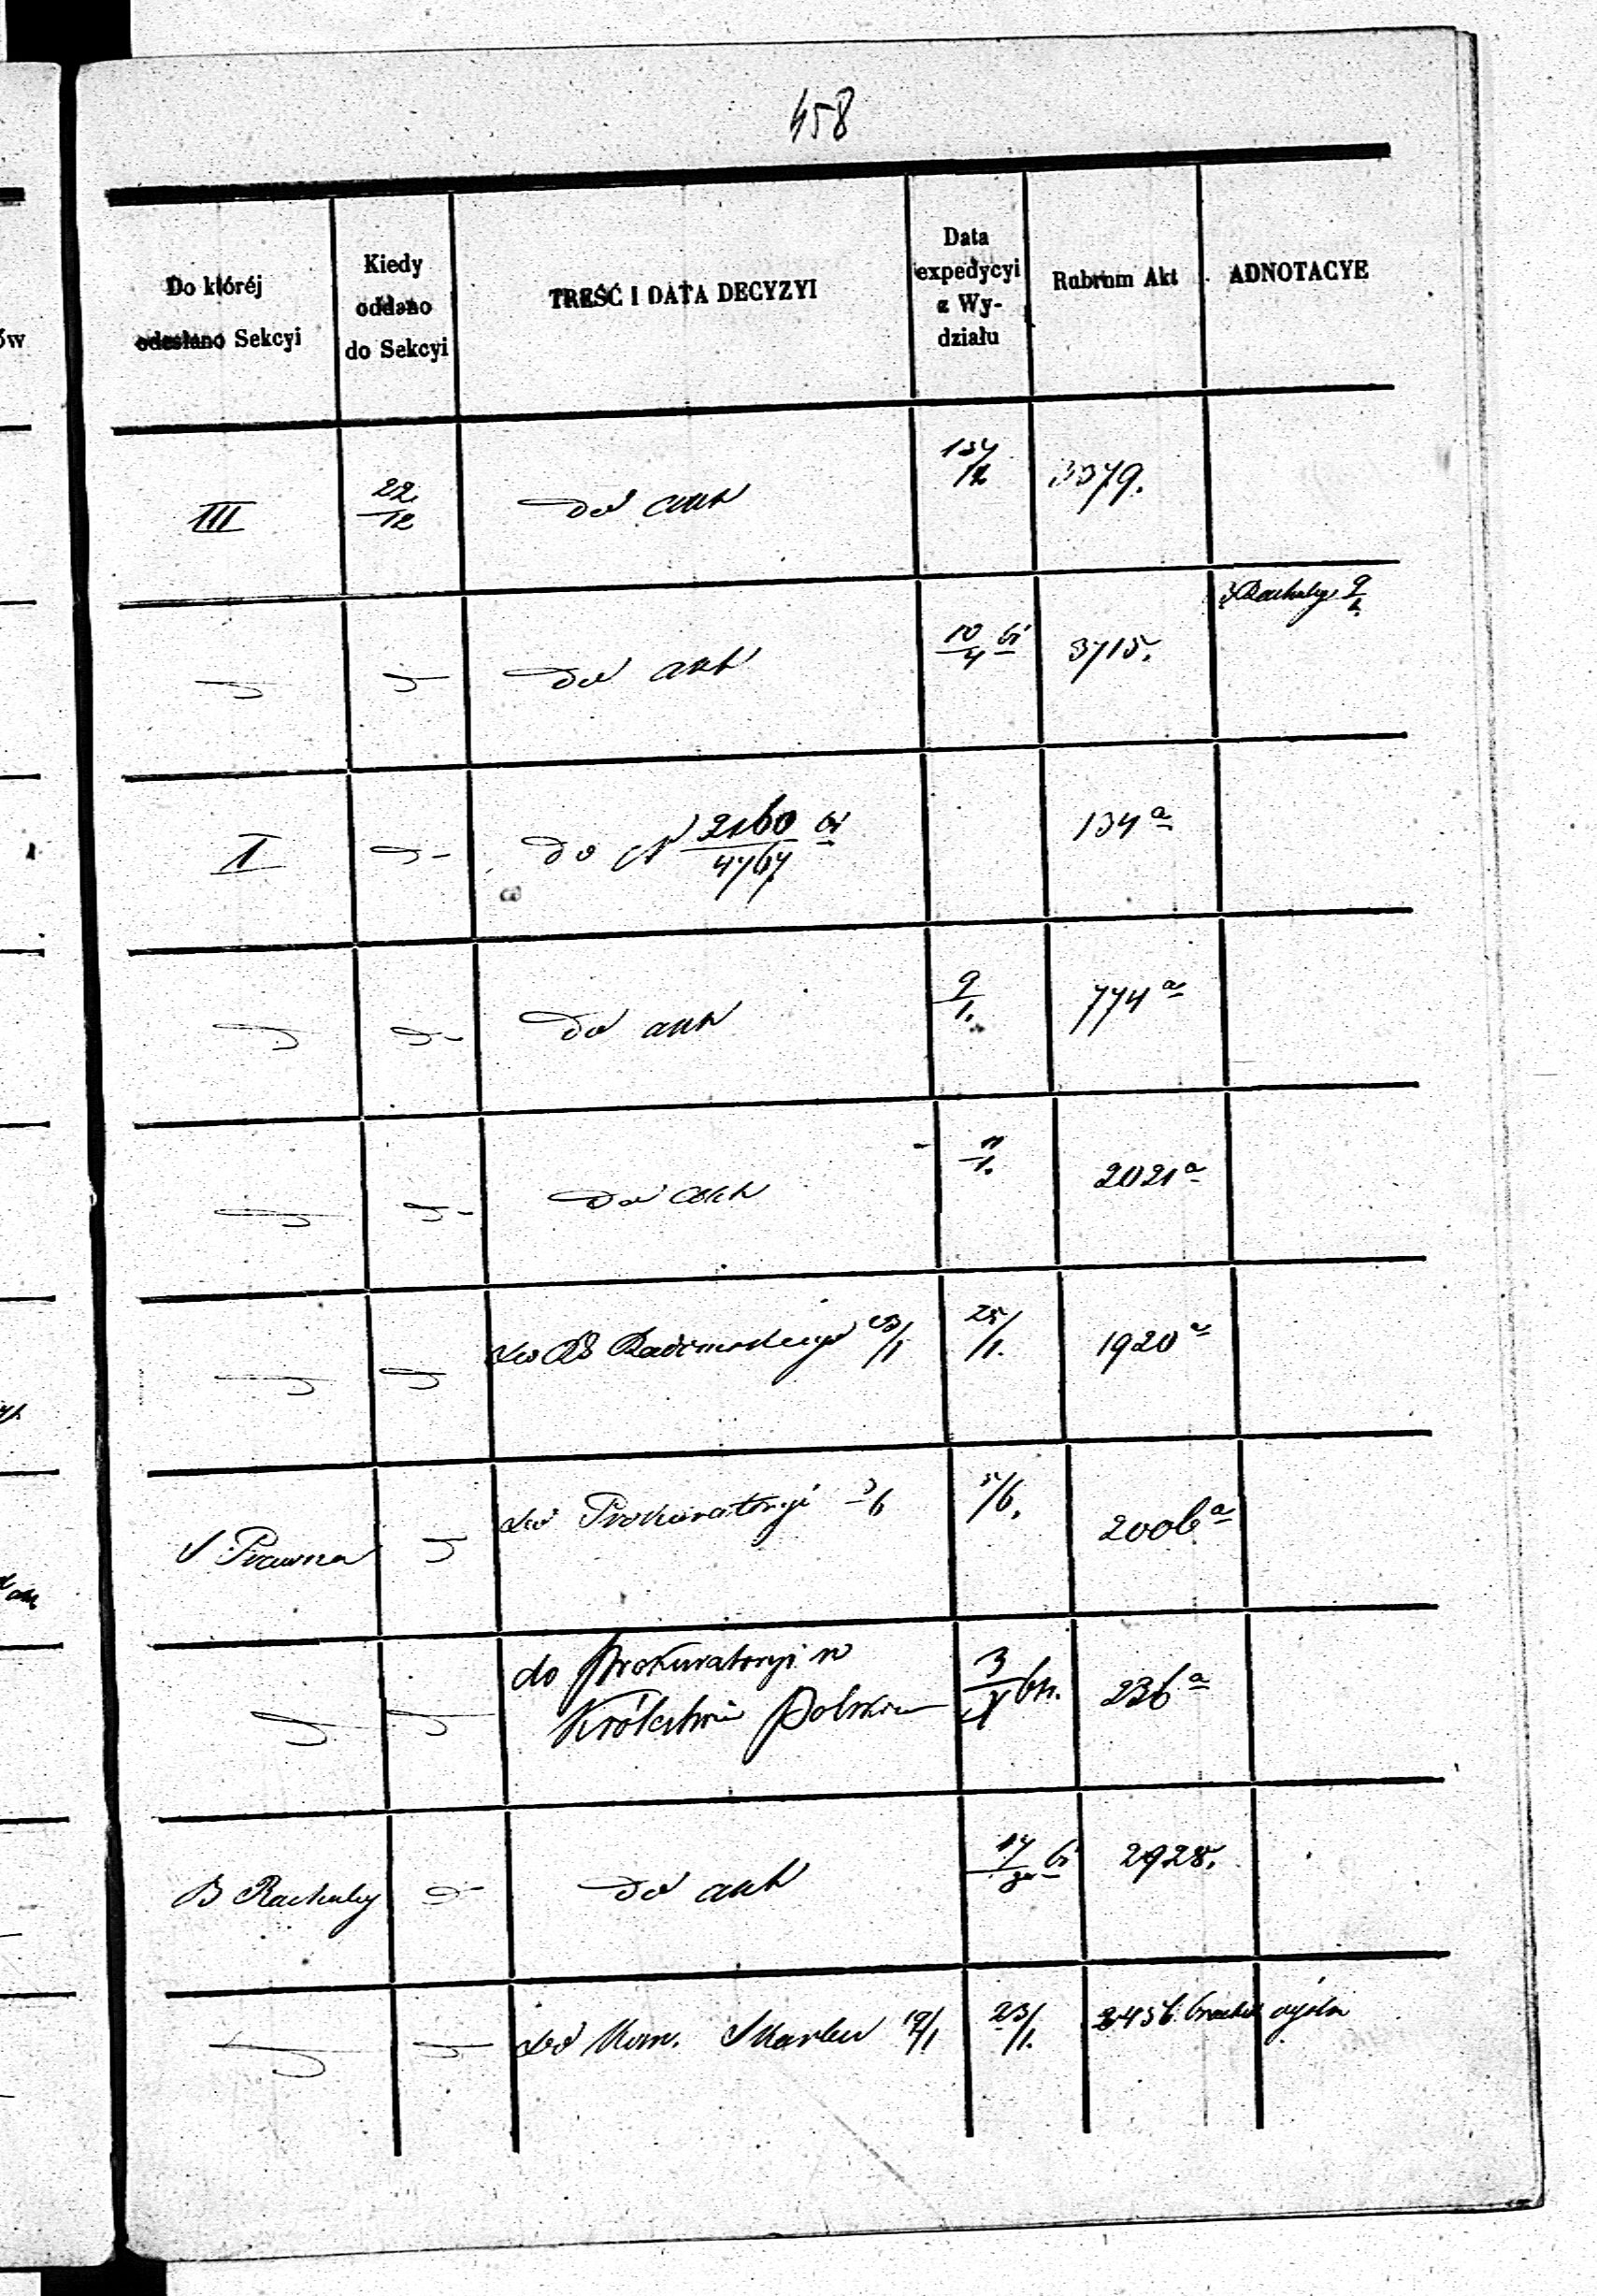 458
Do któréj odesłano Sekcyi
Kiedy oddano do Sekcyi
TREŚĆ I DATA DECYZYI
Data expedycyi z Wydziału
Rubrum Akt
ADNOTACYE
III 22/12 do akt 3079.
do akt 10/4 3715.
I do N 2160/4767 134 a
do akt 9/1. 774 a
do akt 11/1. 2021 a
do Radomskiego 23/1 25/1. 1920 a
S Prawna do Prokuratoryi 3/6 5/6. 2006 a
do Prokuratoryi w
Królestwie Polskim 3/X 236 a
B Rachuby do akt 2928.
do Kom. Skarbu 19/1 23/1. 2456